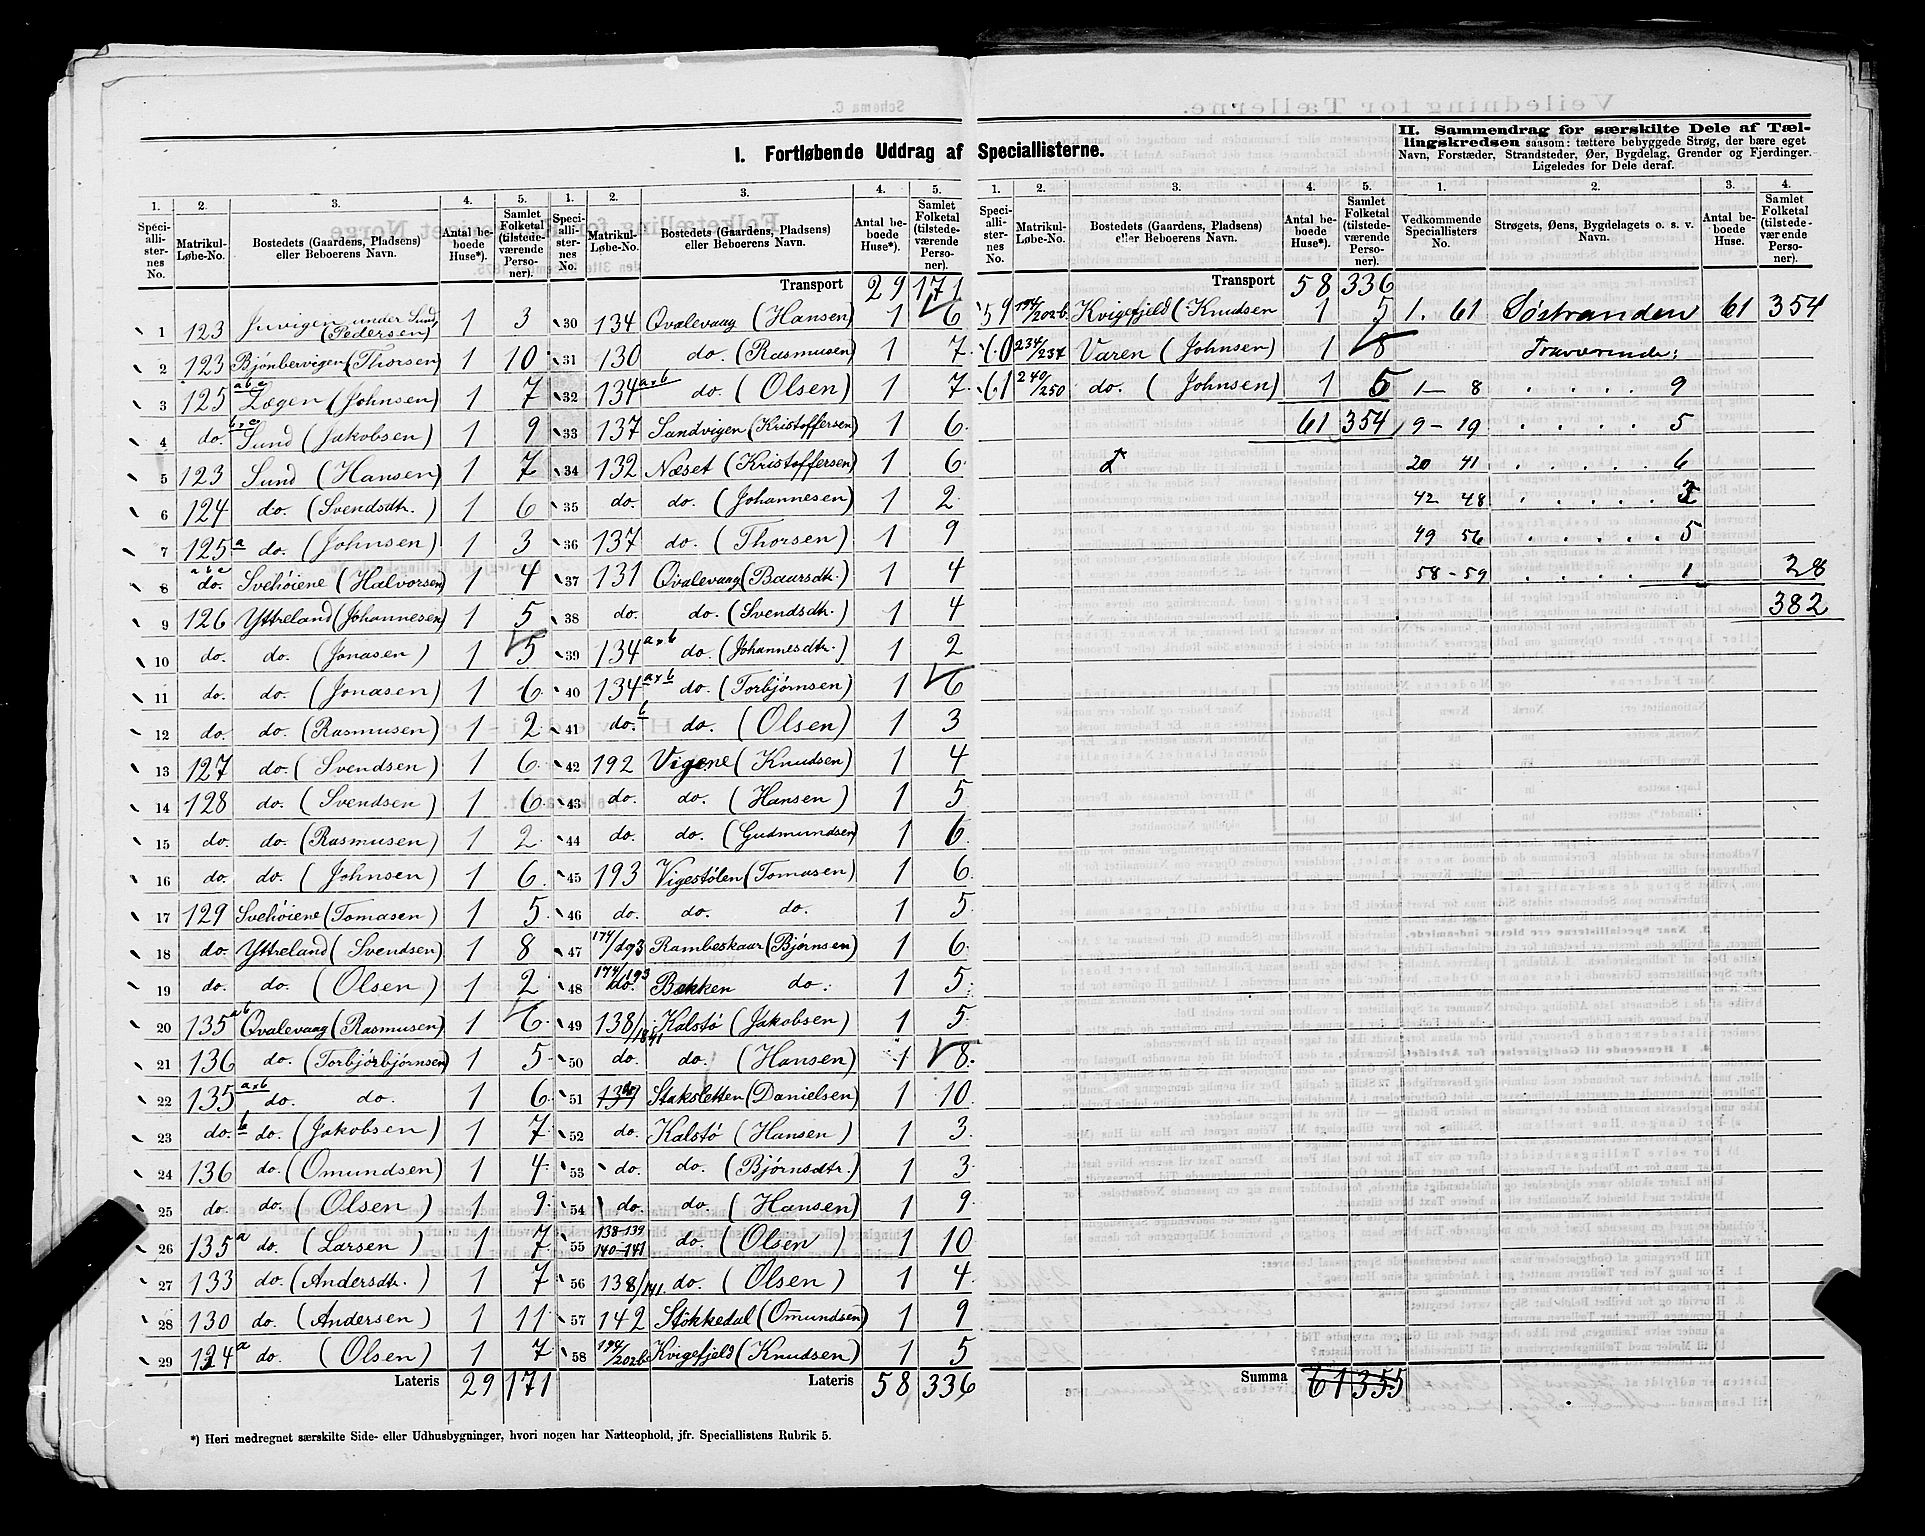 Schema C.
Veiledning for Tællerne.
I. Fortløbende Uddrag af Speciallisterne.
II. Sammendrag for særskilte Dele af Tællingskredsen saasom: tættere bebyggede Strøg, der bære eget
Navn, Forstæder, Strandsteder, Øer, Bygdelag, Grender og Fjerdinger.
Ligeledes for Dele deraf.
1. 2. 3. 4. 5.
Speciallisternes No. Matrikul-Løbe-No. Bostedets (Gaardens, Pladsens) eller Beboerens Navn. Antal beboede Huse*). Samlet Folketal (tilstedeværende Personer).
1 123 Juvigen under Sund (Pedersen) 1 3
2 123 Bjönbervigen (Thorsen) 1 10
3 125 abc Lægen (Johnsen) 1 7
4 do. b+c Sund (Jakobsen) 1 9
5 123 Sund (Hansen) 1 7
6 124 do. (Svendsdtr.) 1 6
7 125 a do. (Johnsen) 1 3
8 do. abc Svehöiene (Halvorsen) 1 4
9 126 Yttreland (Johannesen) 1 5
10 do. do. (Jonasen) 1 5
11 do. do. (Jonasen) 1 6
12 do. do. (Rasmusen) 1 2
13 127 do. (Svendsen) 1 6
14 128 do. (Svendsen) 1 6
15 do. do. (Rasmusen) 1 2
16 do. do. (Johnsen) 1 6
17 129 Svehöiene (Tomasen) 1 5
18 do. Yttreland (Svendsen) 1 8
19 do. do. (Olsen) 1 2
20 135 ab Qvalevaag (Rasmusen) 1 6
21 136 do. (Torbjörbjörnsen) 1 5
22 135 a+b do. do. 1 6
23 do. b do. (Jakobsen) 1 7
24 136 do. (Omundsen) 1 4
25 do. do. (Olsen) 1 9
26 135 a do. (Larsen) 1 7
27 133 do. (Andersdtr.) 1 7
28 130 do. (Andersen) 1 11
29 134 a do. (Olsen) 1 7
Lateris 29 171
1. 2. 3. 4. 5.
Speciallisternes No. Matrikul-Løbe-No. Bostedets (Gaardens, Pladsens) eller Beboerens Navn. Antal beboede Huse*). Samlet Folketal (tilstedeværende Personer).
Transport 29 171
30 134 Qvalevaag (Hansen) 1 6
31 130 do. (Rasmusen) 1 7
32 134 a+b do. (Olsen) 1 7
33 137 Sandvigen (Kristoffersen) 1 6
34 132 Næset (Kristoffersen) 1 6
35 do. do. (Johannesen) 1 2
36 137 do. (Thorsen) 1 9
37 131 Qvalevaag (Baarsdtr.) 1 4
38 do. do. (Svendsdtr.) 1 4
39 134 a+b do. (Johannesdtr.) 1 2
40 134 a+b do. (Torbjørnsen) 1 6
41 do. b do. (Olsen) 1 3
42 192 Vigene (Knudsen) 1 4
43 do. do. (Hansen) 1 5
44 do. do. (Gudmundsen) 1 6
45 193 Vigestölen (Tomasen) 1 6
46 do. do. do. 1 5
47 174/193 Rambeskaar (Bjørnsen) 1 6
48 174/193 do. Bækken do. 1 5
49 138/1841 Kalstø (Jakobsen) 1 5
50 do. do. (Hansen) 1 8
51 139 do Staksletten (Danielsen) 1 10
52 do. Kalstø (Hansen) 1 3
53 do. do. (Bjørnsdtr.) 1 3
54 do. do. (Hansen) 1 9
55 138-139 140-141 do. (Olsen) 1 10
56 138/141. do. (Olsen) 1 4
57 142 Stokkedal (Omundsen) 1 9
58 194/202b Kvigefjeld (Knudsen) 1 5
Lateris 58 336
*) Heri medregnet særskilte Side- eller Udhusbygninger, hvori nogen har Natteophold, jfr. Speciallistens Rubrik 5.
1. 2. 3. 4. 5.
Speciallisternes No. Matrikul-Løbe-No. Bostedets (Gaardens, Pladsens) eller Beboerens Navn. Antal beboede Huse*). Samlet Folketal (tilstedeværende Personer).
Transport 58 336
59 194/202b. Kvigefjeld (Knudsen 1 5
60 234/237 Varen (Johnsen) 1 8
61 240/250 do. (Johnsen) 1 5
61 354
Summa 61 355
1. 2. 3. 4.
Vedkommende Speciallisters No. Strøgets, Øens, Bygdelagets o. s. v. Navn. Antal beboede Huse. Samlet Folketal (tilstedeværende Personer).
1. 61 Söstranden 61 354
Fraværende:
1 - 8 . . . . 9
9 - 19 . . . . . 5
20 41 . . . . . 6
42 48 . . . . .
49 56 . . . . . 5
58 - 59 . . . . 1 28
382